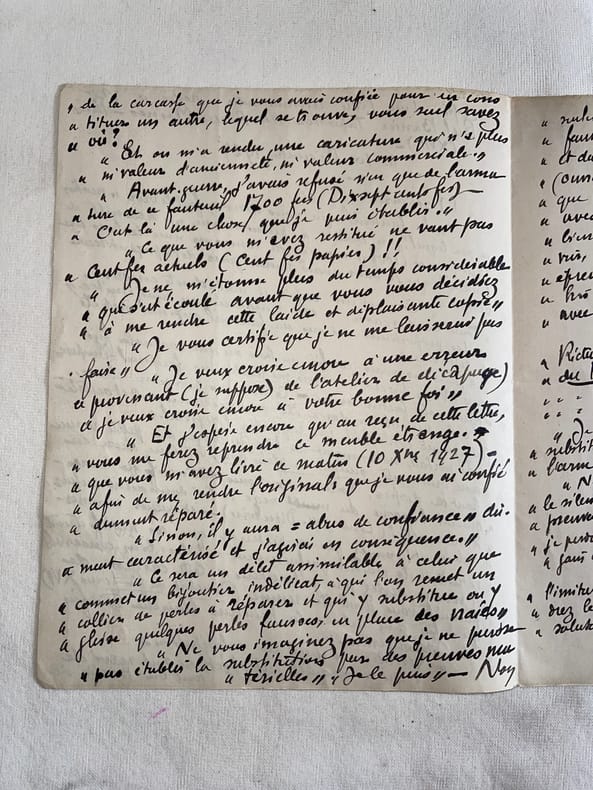 " de la carcasse que je vous avais confiée pour en cons
" tituer un autre, lequel se trouve, vous seul savez
" où?
" Et on m'a rendu une caricature qui n'a plus
" ni valeur d'ancienneté, ni valeur commerciale "
" Avant-guerre, j'avais refusé rien que de l'arma
" ture de ce fauteuil 1700 fcs (Dixsept cents fcs) —
" C'est là une chose que je puis établir. "
" Ce que vous m'avez restitué ne vaut pas
" Cent fcs actuels (Cent fcs papiers) !!
" Je ne m'étonne plus du temps considérable
" qui s'est écoulé avant que vous vous décidiez
" à me rendre cette laide et déplaisante copie "
" Je vous certifie que je ne me laisserai pas
" faire " " Je veux croire encore à une erreur
" provenant (je suppose) de l'atelier de décapage)
" je veux croire encore à votre bonne foi "
" Et j'espère encore qu'au reçu de cette lettre,
" vous me ferez reprendre ce meuble étrange
" que vous m'avez livré ce matin (10 Xbre 1927) —
" afin de me rendre l'original que je vous ai confié
" dument réparé.
" Sinon, il y aura = abus de confiance " dû-
" ment caractérisé et j'agirai en conséquence "
" Ce sera un délit assimilable à celui que
" commet un bijoutier indélicat, à qui l'on remet un
" collier de perles à réparer et qui y substitue ou y
" glisse quelques perles fausses, en place des vraies "
" Ne vous imaginez pas que je ne puisse
" pas établir la substitution par des preuves ma
" térielles " " Je le puis " — Non
" subst
" fau
" et du
" (ouv
" que
" avec
" lieu
" avec
" du
" substit
" l'arm
" N
" le sile
" preuve
" je
" l'imite
" salut